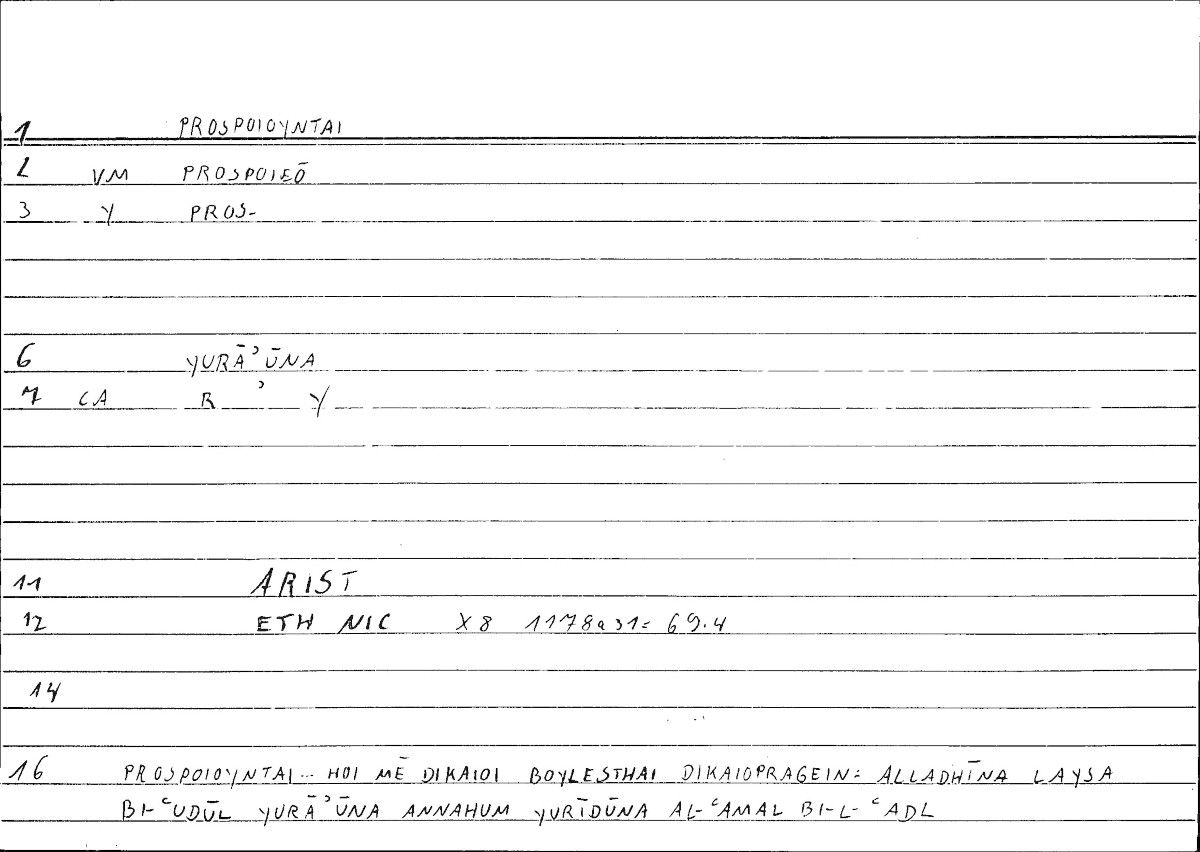 1 PROSPOIOYNTAI
2 VM PROSPOIEŌ
3 Y PROS-
6 YURĀʾŪNA
7 CA R ʾ Y
11 ARIST
12 ETH NIC X 8 1178a31= 69.4
14
16 PROSPOIOYNTAI... HOI MĒ DIKAIOI BOYLESTHAI DIKAIOPRAGEIN= ALLADHĪNA LAYSA
BI-ʿUDŪL YURĀʾŪNA ANNAHUM YURĪDŪNA AL-ʿAMAL BI-L-ʿADL